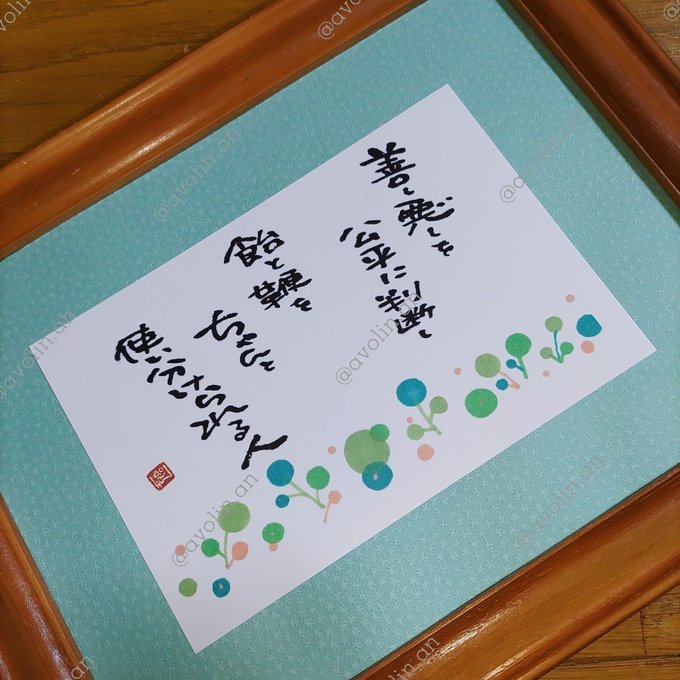 善し悪しを
公平に
飴と鞭を
ちゃんと
使い分けられる人
@avolin.an
@avolin.an
@avolin.an
@avolin.an
@avolin.an
@avolin.an
@avolin.an